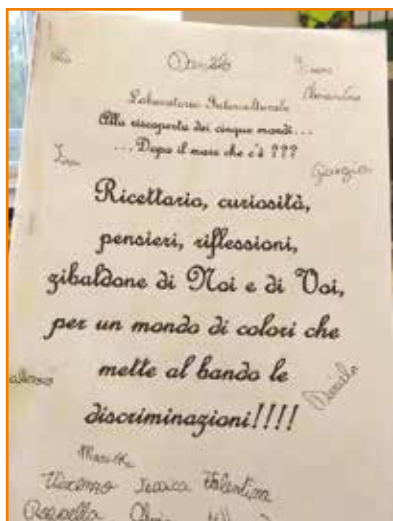 Danilo
Laboratorio Interculturale
Alla riscoperta dei cinque mondi...
...Dopo il mare che c'è ???
Giorgia
Ricettario, curiosità,
pensieri, riflessioni,
zibaldone di Noi e di Voi,
per un mondo di colori che
mette al bando le
discriminazioni!!!!
Daniela
Jessica Valentina
Rossella